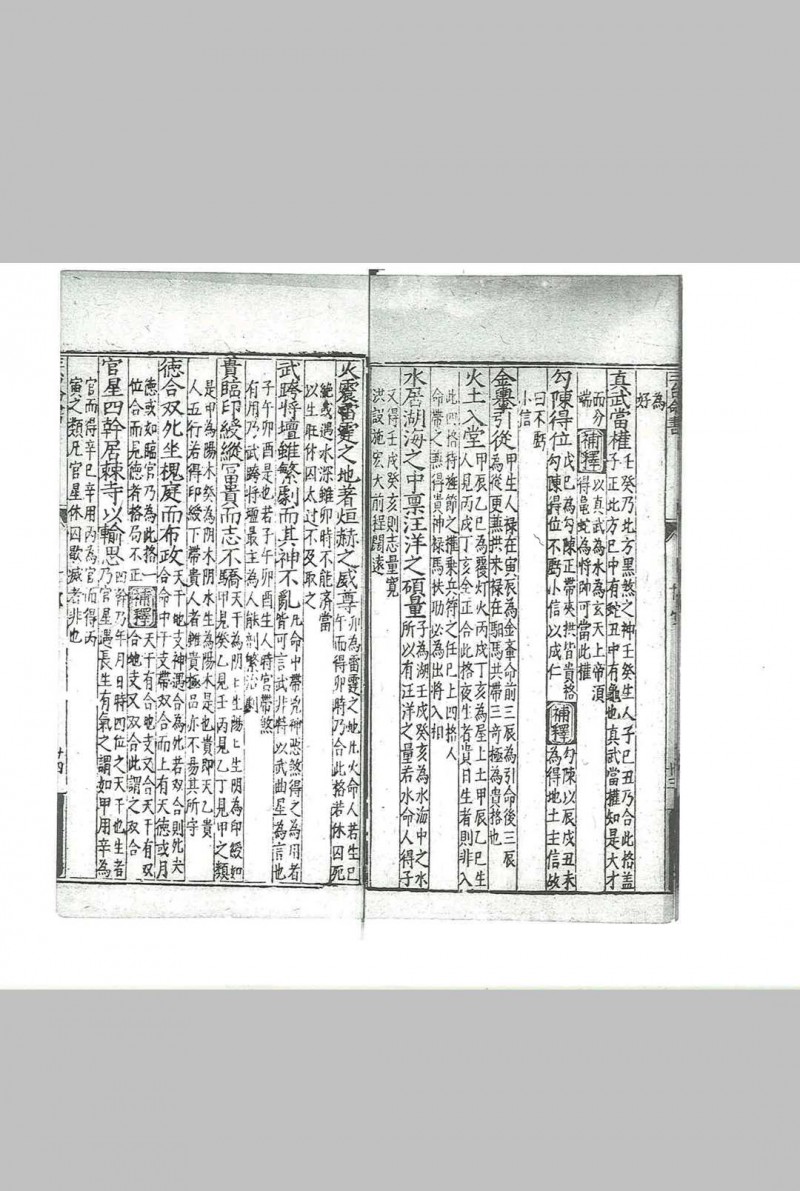 為
好
真武當權 壬癸乃北方黑煞之神壬癸生人子巳丑乃合此格盖
子正北方巳中有蛇丑中有龜也真武當權知是大才
而分
端 補釋 以真武為水為玄天上帝頂
得龜蛇為將即可當此權
勾陳得位 戊巳為勾陳正帶夾拱皆貴格
勾陳得位不虧小信以成仁 補釋 勾陳以辰戌丑未
為得地土主信故
曰不虧
小信
金轝引從 甲生人禄在寅辰為金轝命前三辰為引命後三辰
為從更兼拱夹禄在馹馬共帶三竒極為貴格也
火土入堂 甲辰乙巳為覆灯火丙戌丁亥為屋上土甲辰乙巳生
人見丙戌丁亥全正合此格夜生者貴日生者則非入
此四格待旌節之權乗兵符之任巳上四格人
命帶之兼得貴神禄馬扶助必為出將入相
水居湖海之中禀汪洋之碩量 子為湖壬戌癸亥為水海中之水
所以有汪洋之量若水命人得子
又得壬戌癸亥則志量寛
洪設施宏大前程闊遠
火震雷霆之地者烜赫之威尊 卯為雷霆之地比火命人若生巳
午而得卯時乃合此格若休囚死
絶或遇水深雖卯時不能済當
以生旺休囚太过不及取之
武跨將壇雖繁劇而其神不亂 凡命中帶兇神惡煞得之為用者
皆可言武非特以武曲星為言也
子午卯酉是也若子午卯酉生人時宫帶煞
有用乃武跨將壇最主為人能剖繁治劇
貴臨印綬縱冨貴而志不驕 天干為阴匕生陽匕生阴為印綬如
甲見癸乙見壬丙見乙丁見甲之類
是甲為陽木癸為阴水阴水生為陽木是也貴即天乙貴
人五行若得印綬下帶貴人者雖貴極品亦不昜其所守
徳合双死坐槐庭而布政 天干地支神遇合為死若双合則死夫
合命中干支帶双合而上有天徳或月
徳或如臨官乃為此格一
位合而見徳者格局不正 補釋 天干有合地支又合天干有双
合地支又双合此謂之双合
官星四幹居棘寺以輸思 四幹乃年月日時四位之天干也生者
乃官星遇長生有氣之謂如甲用辛為
官而得辛巳辛用丙為官而得丙
寅之類凡官星休囚歇滅者非也